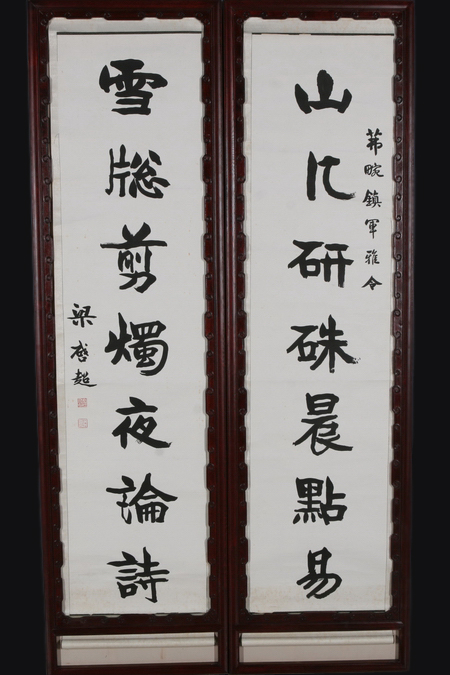 山几研硃晨點易
茀畹鎮軍雅令
雪牕剪燭夜論詩
梁啓超